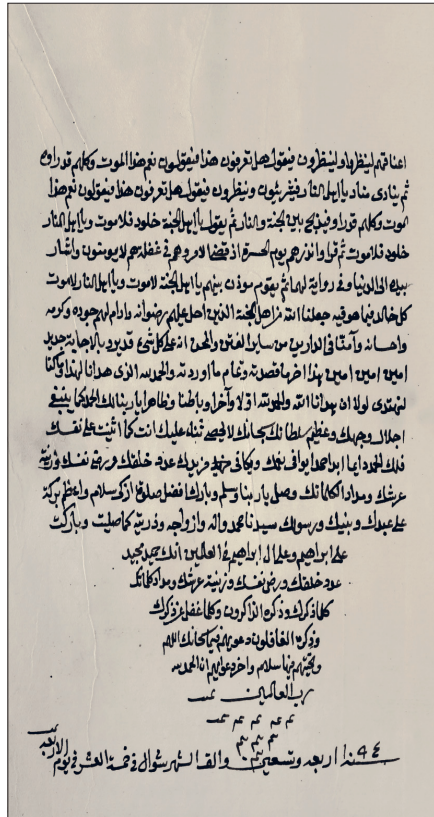 اعناقهم لينظروا وينظرون فيقول هل تعرفون هذا فيقولون نعم هذا الموت وكلهم قد راوه
ثم ينادي مناد يا اهل النار فيشرئبون وينظرون فيقول هل تعرفون هذا فيقولون نعم هذا
الموت وكلهم قد راوه فيذبح بين الجنة والنار ثم يقول يا اهل الجنة خلود فلا موت ويا اهل النار
خلود فلا موت ثم قرا وانذرهم يوم الحسرة اذ قضي الامر وهم في غفلة وهم لا يومنون واشار
بيده الى الدنيا وفي رواية لهما ثم يقوم موذن بينهم يا اهل الجنة لا موت ويا اهل النار لا موت
كل خالد فيما هو فيه جعلنا الله من اهل الجنة الذين احل عليهم رضوانه وادام لهم جوده وكرمه
واحسانه وامننا في الدارين من ساير الفتن والمحن انه على كل شيء قدير وبالاجابة جدير
امين امين امين هذا اخر ما قصدته وتمام ما اوردته والحمد لله الذي هدانا لهذا وما كنا
لنهتدي لولا ان هدانا الله والحمد لله اولا واخرا وباطنا وظاهرا يا ربنا لك الحمد كما ينبغي
لجلال وجهك وعظيم سلطانك سبحانك لا نحصي ثناء عليك انت كما اثنيت على نفسك
فلك الحمد دايما ابدا حمدا يوافي نعمك ويكافي مزيدك عدد خلقك ورضى نفسك وزنة
عرشك ومداد كلماتك وصل يا ربنا وسلم وبارك افضل صلوة وازكى سلام واعظم بركة
على عبدك ونبيك ورسولك سيدنا محمد واله وازواجه وذريته كما صليت وباركت
على ابراهيم وعلى ال ابراهيم في العالمين انك حميد مجيد
عدد خلقك ورضى نفسك وزنة عرشك ومداد كلماتك
كلما ذكرك وذكره الذاكرون وكلما غفل عن ذكرك
وذكره الغافلون دعويهم فيها سبحانك اللهم
وتحيتهم فيها سلام واخر دعواهم ان الحمد لله
رب العالمين تمت
تم تم تم تم تمت
تم تم تم
سنة ١٠٩٤ اربعة وتسعين والف الشهر شوال في خمسة العشر في يوم الاربعه
تمت